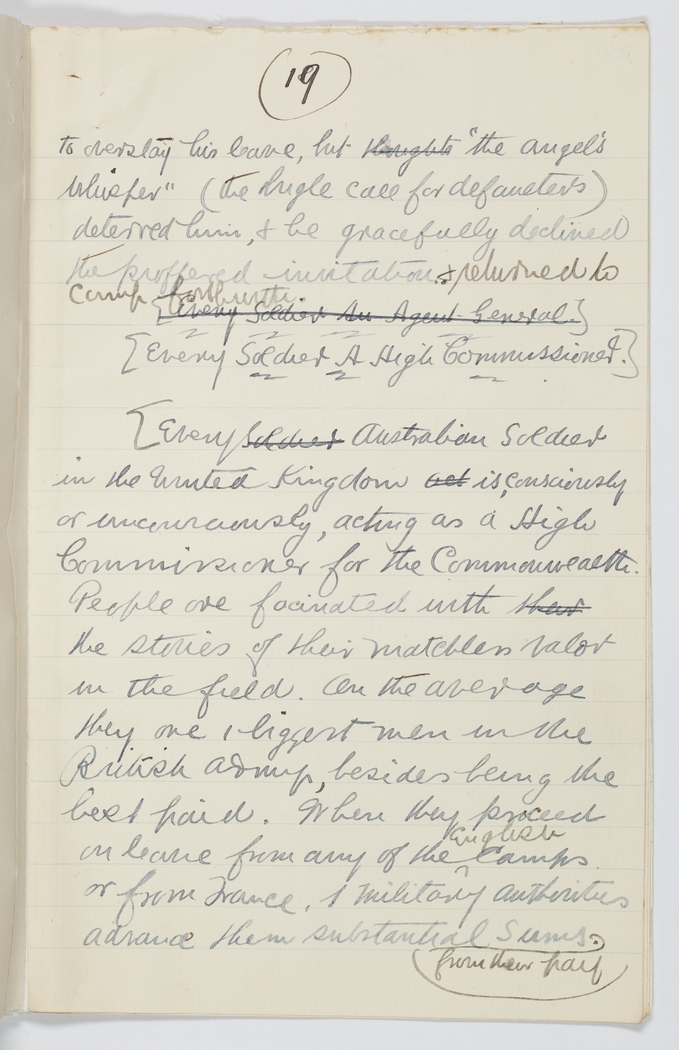 19
to overstay his leave, but thoughts "the angel's
whisper" (the bugle call for defaulters)
deterred him, & he gracefully declined
the proffered invitation & returned to
camp forthwith.
[Every Soldier An Agent General.]
[Every Soldier A High Commissioner.]
[Every Soldier Australian Soldier
in the United Kingdom act is, consciously
or unconsciously, acting as a High
Commissioner for the Commonwealth.
People are facinated with their
the stories of their matchless valor
in the field. On the average
they are biggest men in the
British Army, besides being the
best paid. When they proceed
English
on leave from any of the Camps
or from France, military authorities
advance them substantial Sums.
(from their pay)